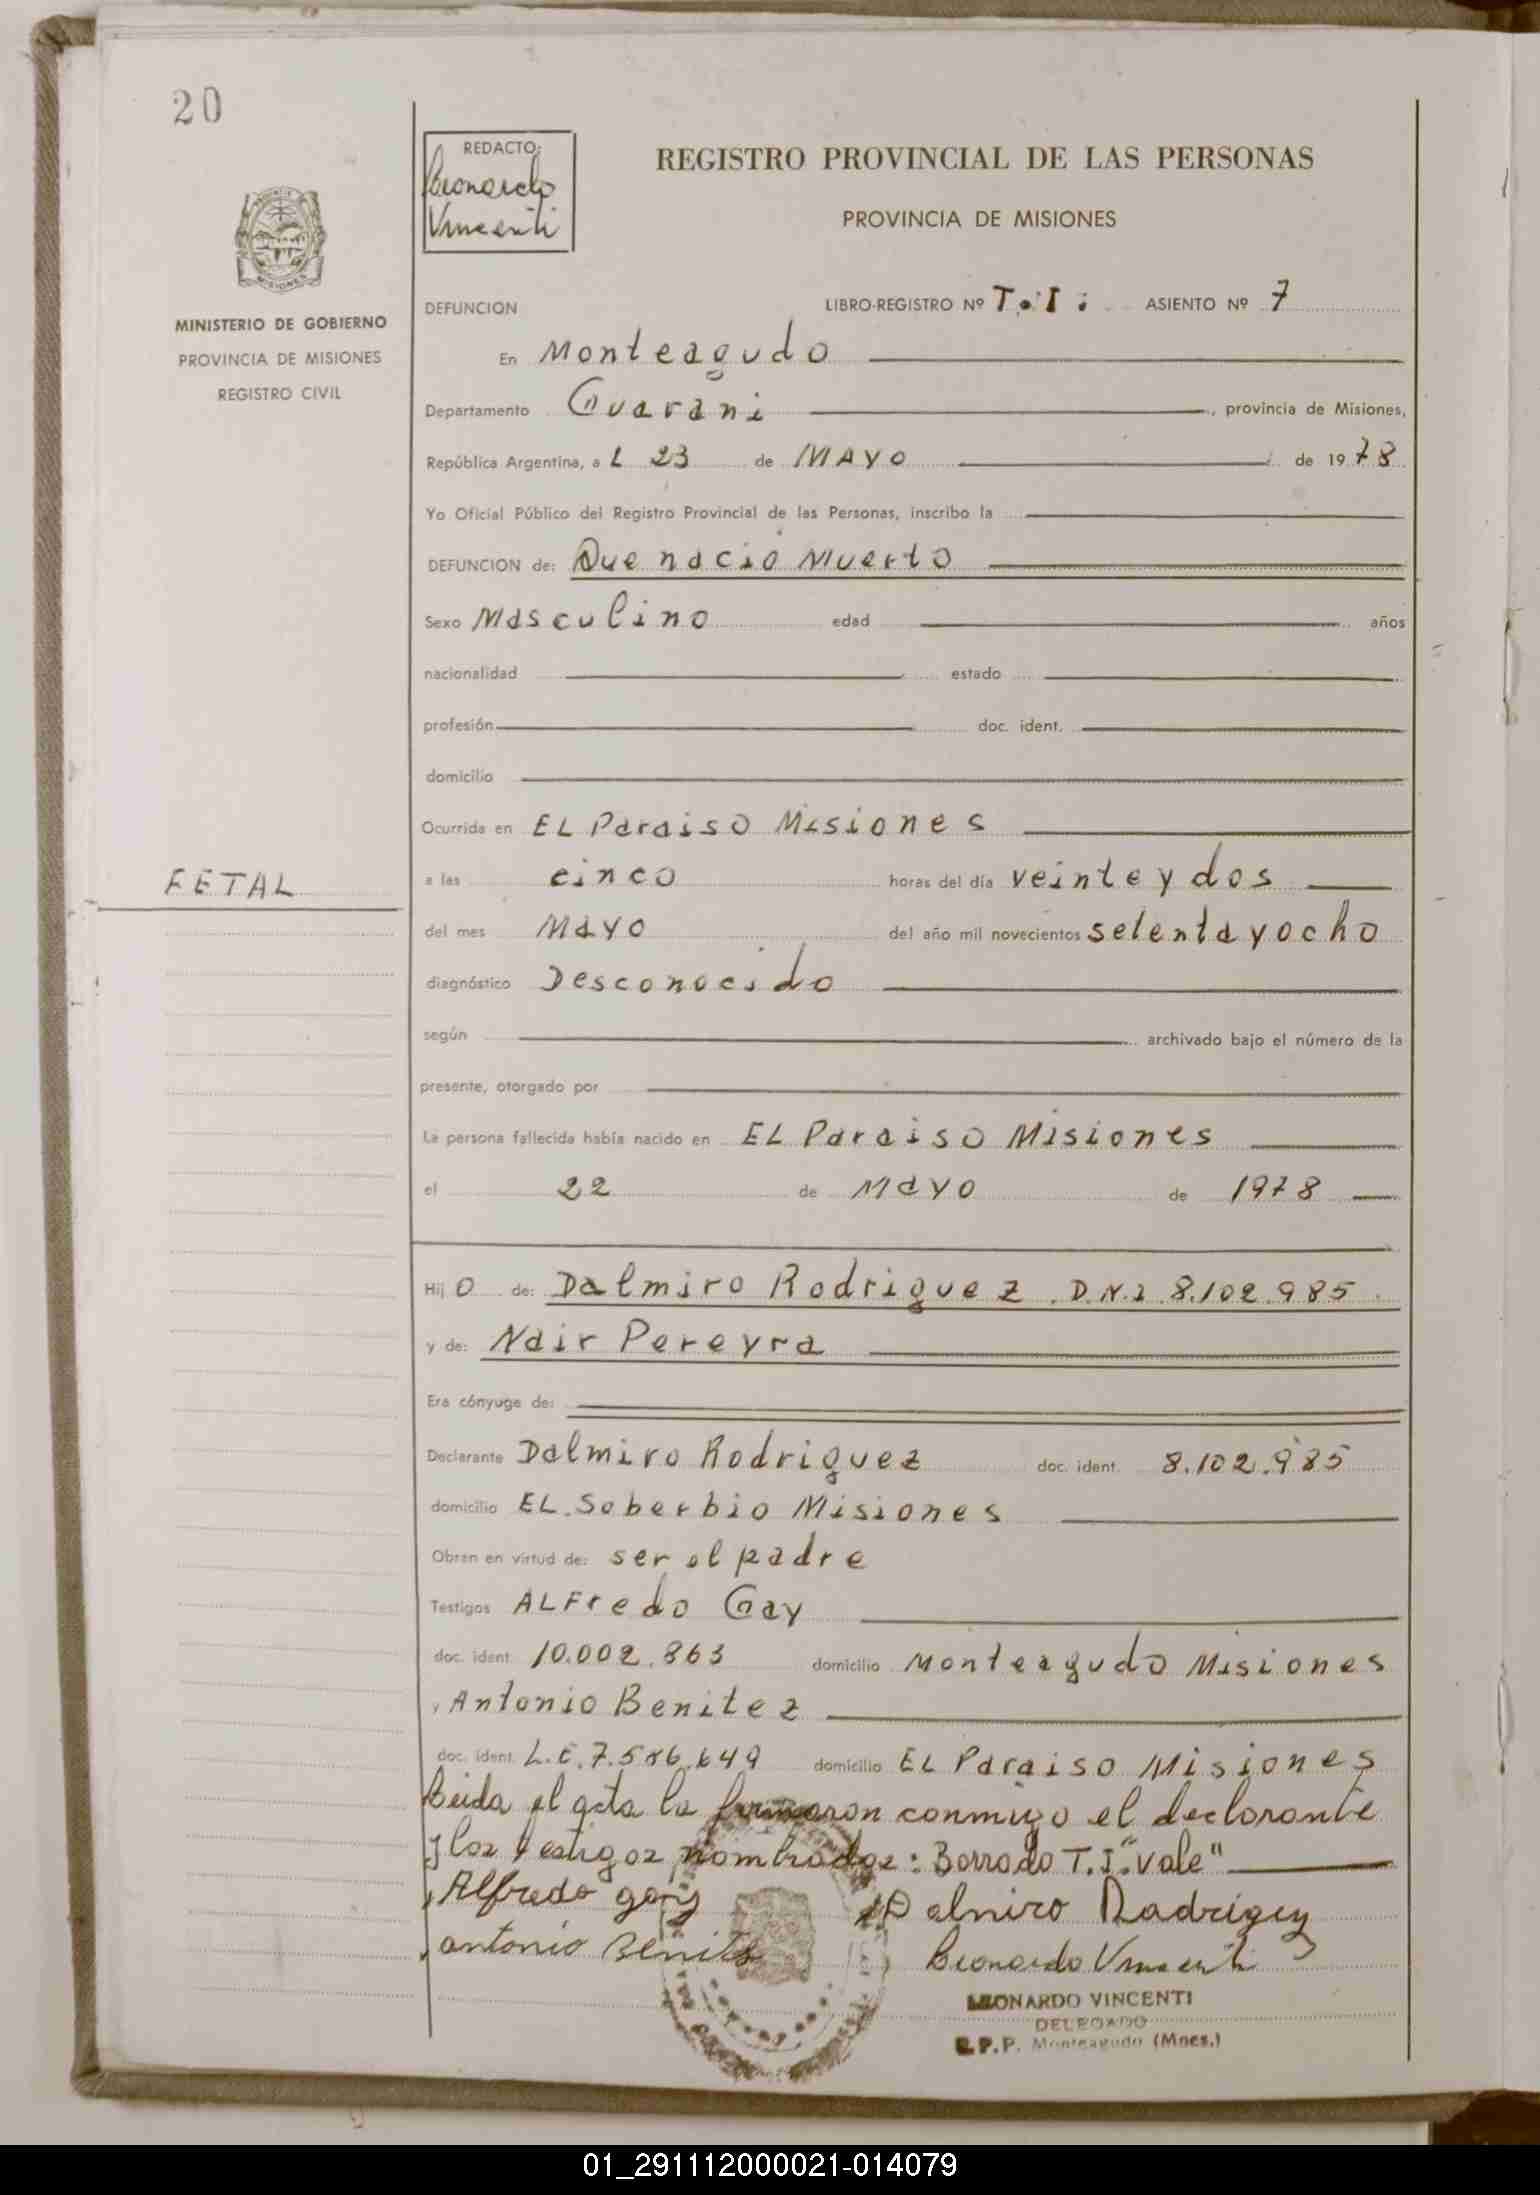 20
REDACTO:
Leonardo
Vincenti
REGISTRO PROVINCIAL DE LAS PERSONAS
PROVINCIA DE MISIONES
MISIONES
MINISTERIO DE GOBIERNO
PROVINCIA DE MISIONES
REGISTRO CIVIL
DEFUNCION LIBRO-REGISTRO Nº T.I. ASIENTO Nº 7
En Monteagudo
Departamento Guarani, provincia de Misiones,
República Argentina, a L 23 de MAYO de 1978
Yo Oficial Público del Registro Provincial de las Personas, inscribo la
DEFUNCION de: Que nacio Muerto
Sexo Masculino edad años
nacionalidad estado
profesión doc. ident.
domicilio
Ocurrida en EL Paraiso Misiones
FETAL
a las cinco horas del día veinte y dos
del mes MAYO del año mil novecientos setenta y ocho
diagnóstico Desconocido
según archivado bajo el número de la
presente, otorgado por
La persona fallecida había nacido en EL Paraiso Misiones
el 22 de MAYO de 1978
Hij O de: Dalmiro Rodriguez . D.N.I 8.102.985.
y de: Nair Pereyra
Era cónyuge de:
Declarante Dalmiro Rodriguez doc. ident. 8.102.985
domicilio EL Soberbio Misiones
Obran en virtud de: ser el padre
Testigos ALFredo Gay
doc. ident. 10.002.863 domicilio Monteagudo Misiones
y Antonio Benitez
doc. ident. L.E.7.586.649 domicilio EL Paraiso Misiones
Leida el acta la firmaron conmigo el declarante
y los testigos nombrados: Borrado T.I. "vale"
Alfredo gay
Dalmiro Rodriguez
antonio Benites
Leonardo Vincenti
LEONARDO VINCENTI
DELEGADO
R.P.P. Monteagudo (Mnes.)
01_291112000021-014079